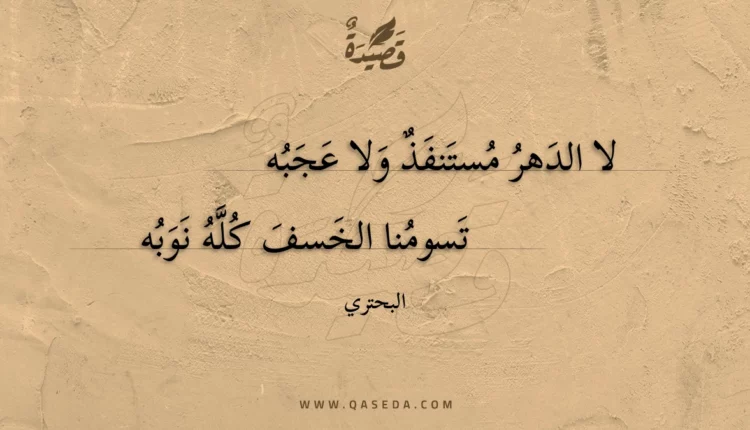 قَصِيدَةٌ
لا الدَهرُ مُستَنفَذٌ وَلا عَجَبُه
تَسومُنا الخَسفَ كُلَّهُ نَوَبُه
البحتري
WWW.QASEDA.COM